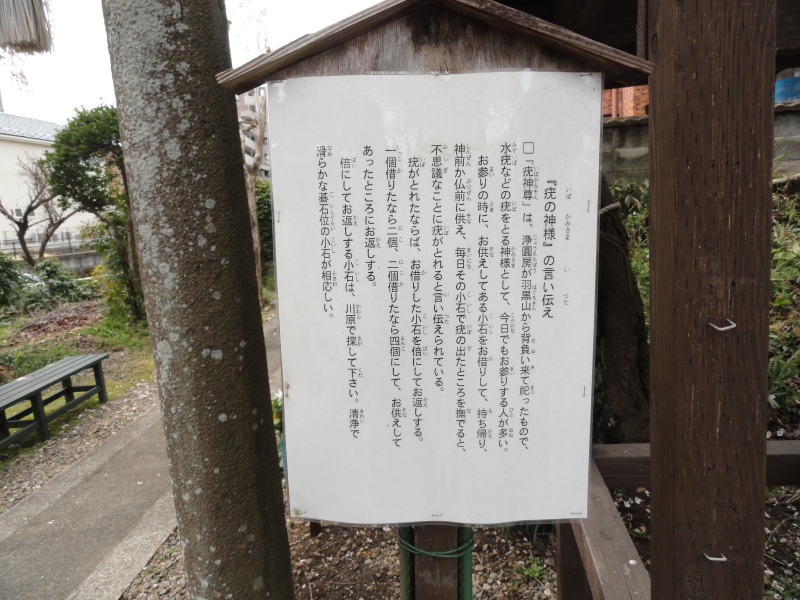 『疣の神様』の言い伝え
□「疣神尊」は、浄圓房が羽黒山から背負い来て祀ったもので、
水疣などの疣をとる神様として、今日でもお参りする人が多い。
お参りの時に、お供えしてある小石をお借りして、持ち帰り、
神前か仏前に供え、毎日その小石で疣の出たところを撫でると、
不思議なことに疣がとれると言い伝えられている。
疣がとれたならば、お借りした小石を倍にしてお返しする。
一個借りたなら二個、二個借りたなら四個にして、お供えして
あったところにお返しする。
倍にしてお返しする小石は、川原で探して下さい。清浄で
滑らかな碁石位の小石が相応しい。